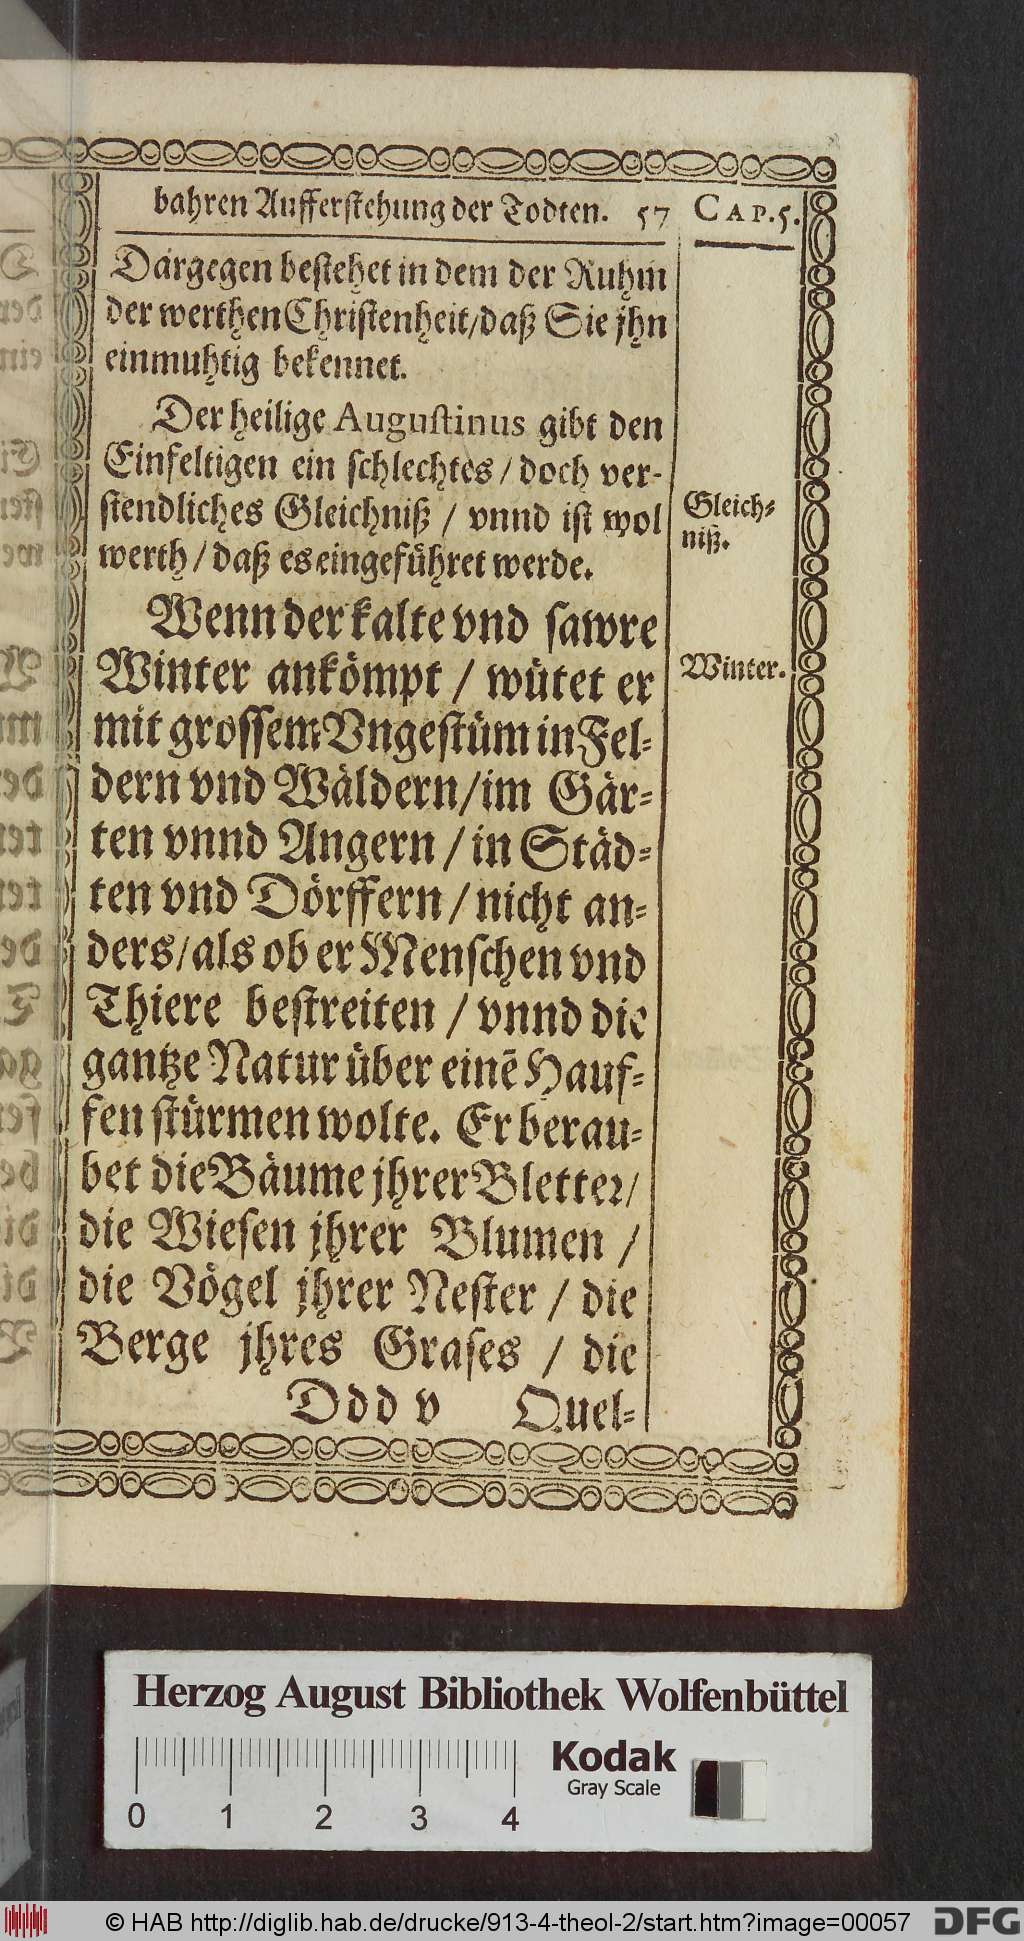 bahren Aufferstehung der Todten. 57 CAP.5.
Dargegen bestehet in dem der Ruhm
der werthen Christenheit/daß Sie jhn
einmuhtig bekennet.
Der heilige Augustinus gibt den
Einfeltigen ein schlechtes / doch ver-
stendliches Gleichniß / vnnd ist wol
werth / daß es eingeführet werde.
Gleich-
niß.
Wenn der kalte vnd sawre
Winter ankömpt / wütet er
Winter.
mit grossem Vngestüm in Fel-
dern vnd Wäldern/im Gär-
ten vnnd Angern / in Städ-
ten vnd Dörffern / nicht an-
ders/als ob er Menschen vnd
Thiere bestreiten / vnnd die
gantze Natur über einē Hauf-
fen stürmen wolte. Er berau-
bet die Bäume jhrer Bletter/
die Wiesen jhrer Blumen /
die Vögel jhrer Nester / die
Berge jhres Grases / die
Ddd v Quel-
Herzog August Bibliothek Wolfenbüttel
Kodak
Gray Scale
0 1 2 3 4
© HAB http://diglib.hab.de/drucke/913-4-theol-2/start.htm?image=00057
DFG